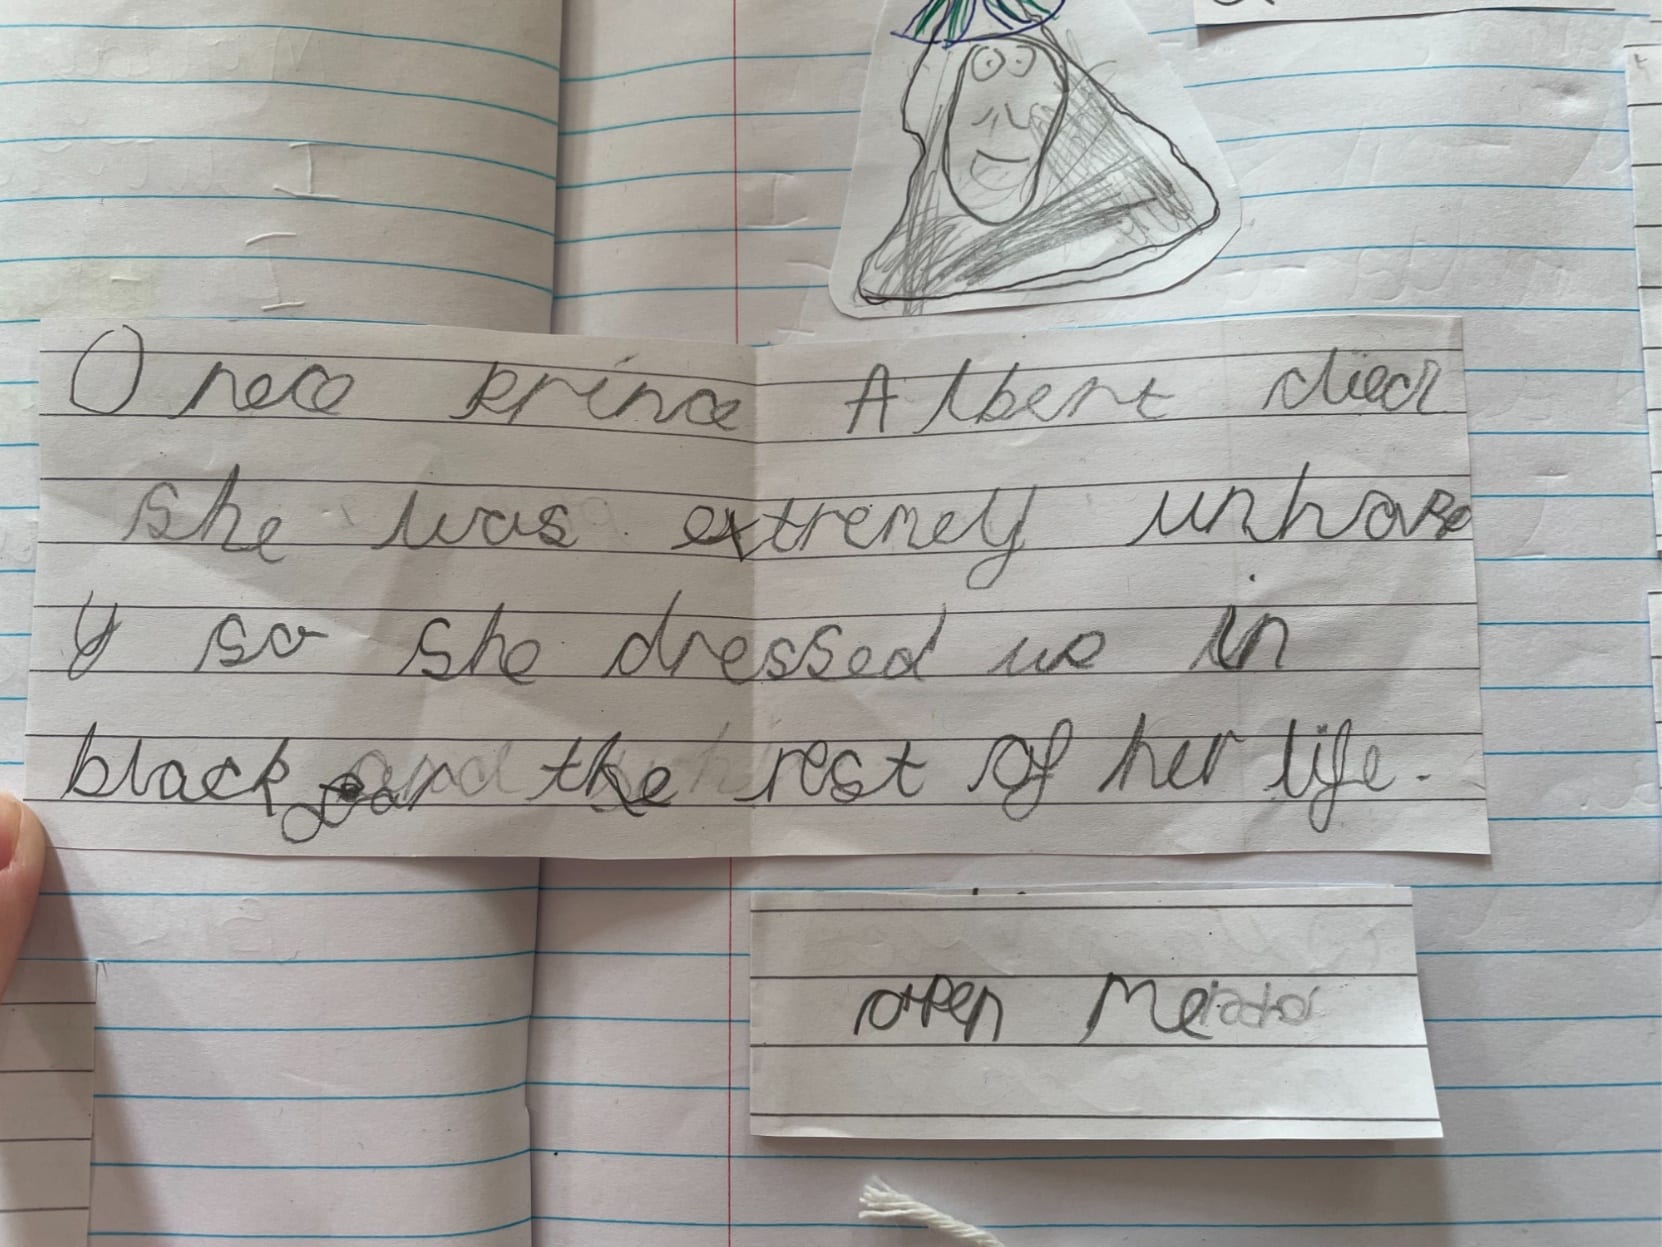 Once prince Albert died
she was extremely unhapp
y so she dressed up in
black for the rest of her life.
open me